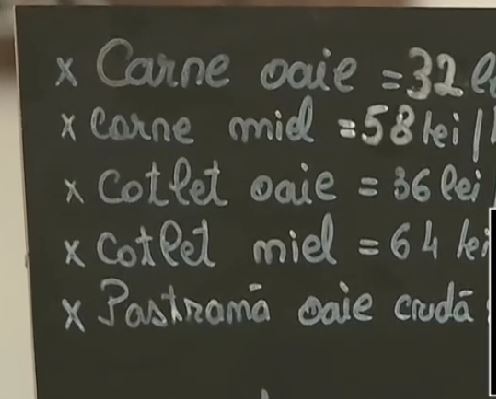 x Carne oaie = 32 le
x Carne miel = 58 lei /
x Cotlet oaie = 36 lei
x Cotlet miel = 64 lei
x Pastramă oaie crudă